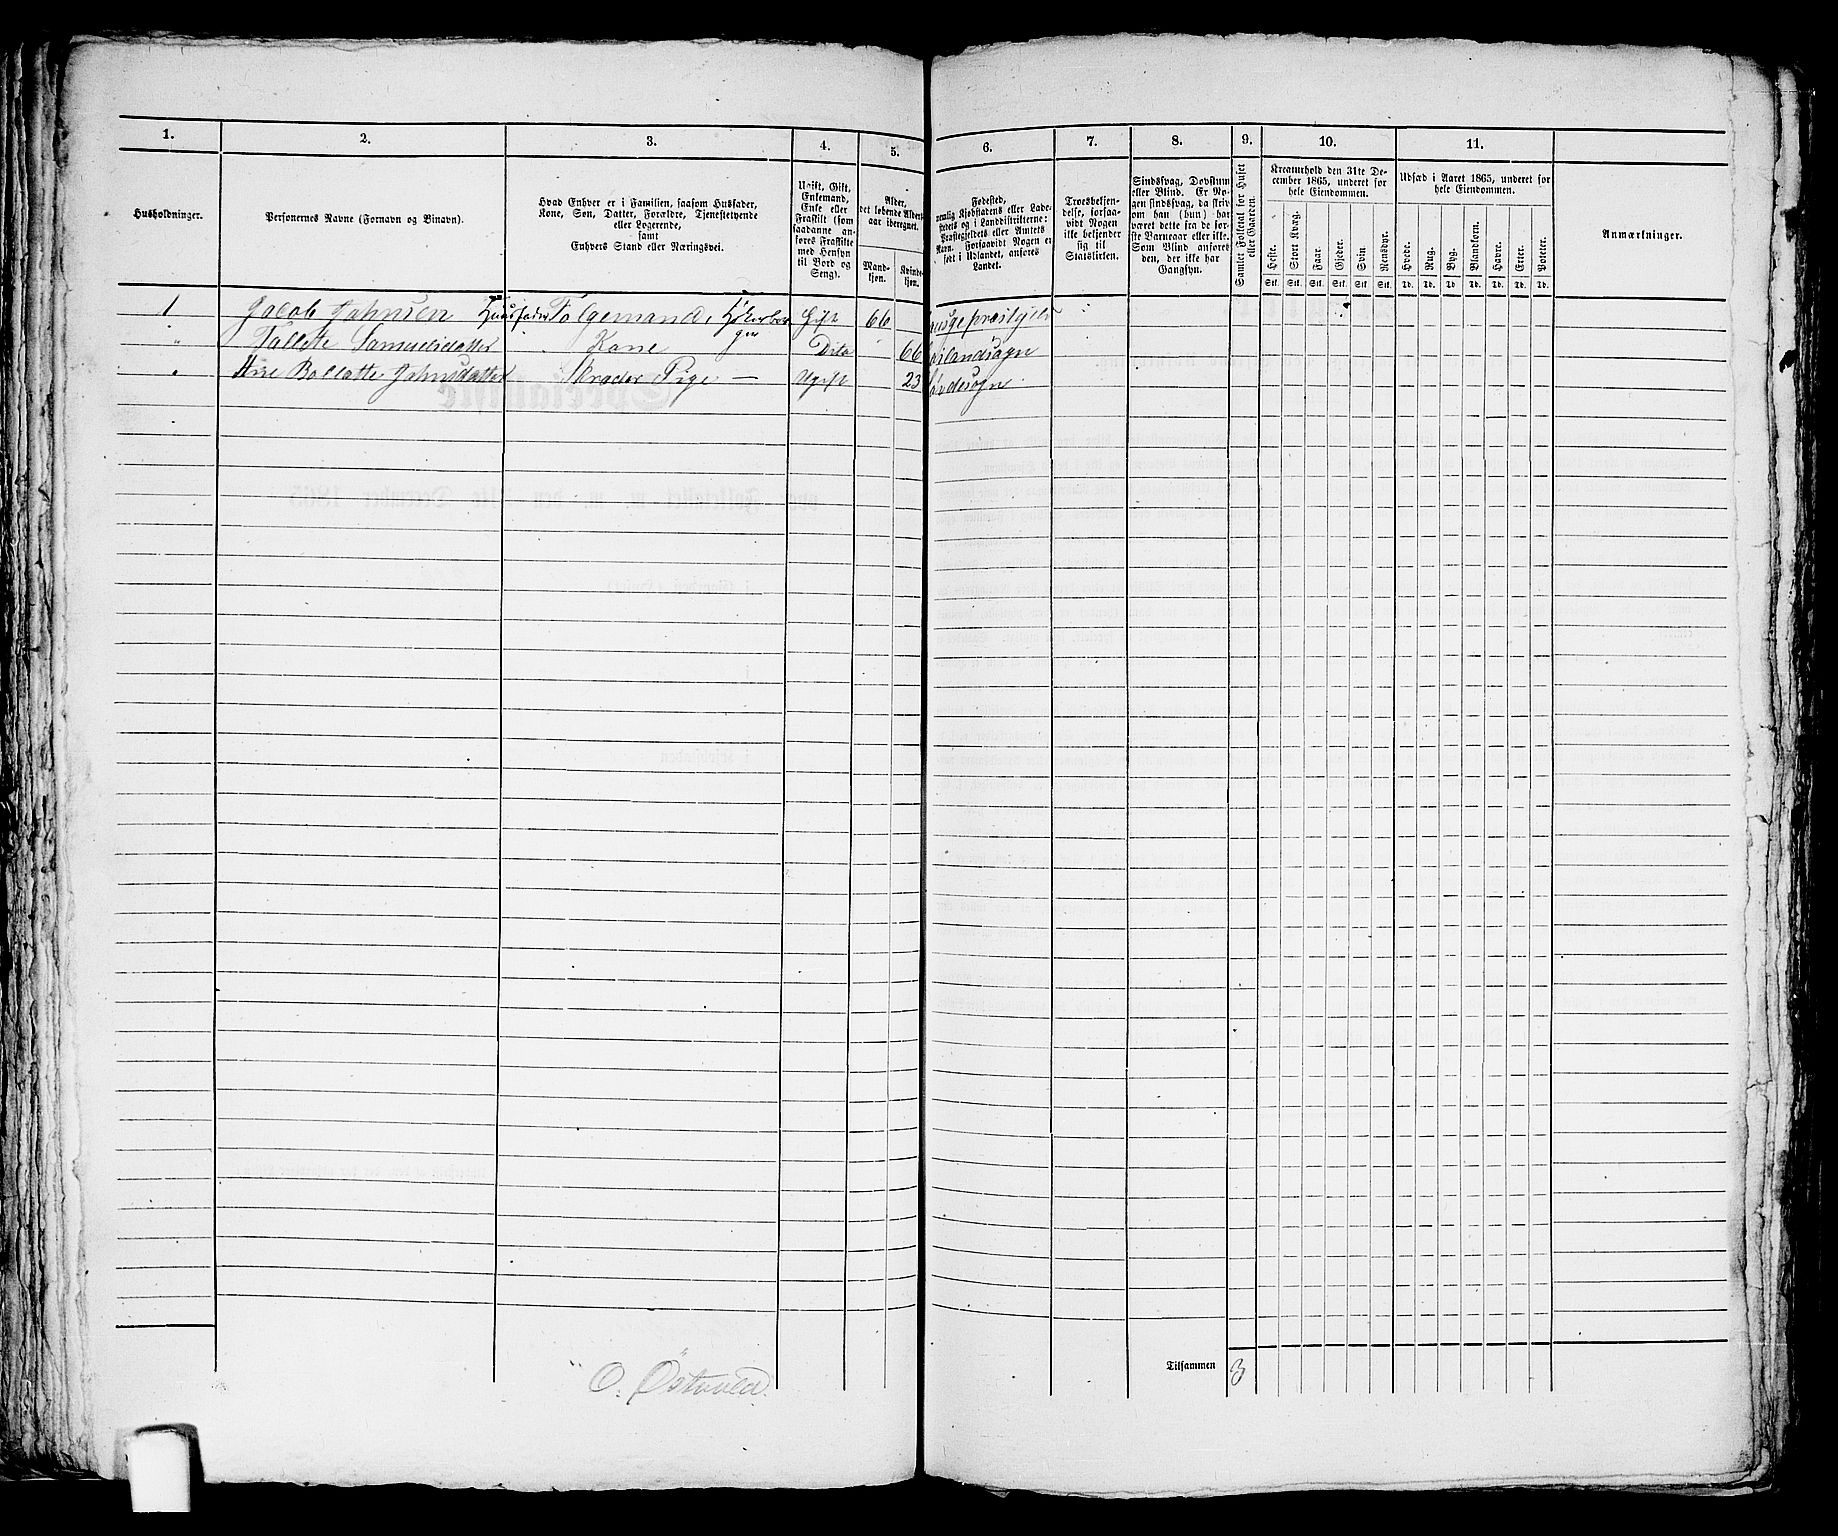 1. 2. 3. 4. 5. 6. 7. 8. 9. 10. 11.
Husholdninger.
Personernes Navne (Fornavn og Binavn).
Hvad Enhver er i Familien, saasom Husfader,
Kone, Søn, Datter, Forældre, Tjenestetyende
eller Logerende,
samt
Enhvers Stand eller Næringsvei.
Ugift, Gift,
Enkemand,
Enke eller
Fraskilt (som
saadanne an-
føres Fraskilte
med Hensyn
til Bord og
Seng).
Alder,
det løbende Alders-
aar iberegnet.
Mand-
kjøn.
Kvinde-
kjøn.
Fødested,
nemlig Kjøbstadens eller Lade-
stedets og i Landdistrikterne:
Præstegjeldets eller Amtets
Navn. Forsaavidt Nogen er
født i Udlandet, anføres
Landet.
Troesbekjen-
delse, forsaa-
vidt Nogen
ikke bekjender
sig til
Statskirken.
Sindssvag, Døvstum
eller Blind. Er No-
gen sindssvag, da skriv
om han (hun) har
været dette fra de før-
ste Barneaar eller ikke.
Som Blind anføres
den, der ikke har
Gangsyn.
Samlet Folketal for Huset
eller Gaarden.
Kreaturhold den 31te De-
cember 1865, underet for
hele Eiendommen.
Heste. Stort Kvæg. Faar. Gjeder. Svin. Rensdyr.
Stk. Stk. Stk. Stk. Stk. Stk.
Udsæd i Aaret 1865, underet for
hele Eiendommen.
Hvede. Rug. Byg. Blandkorn. Havre. Erter. Poteter.
Td. Td. Td. Td. Td. Td. Td.
Anmærkninger.
1 Jacob Jahnsen Huusfader Gift 66
" Tallete Samuelsdatter Kone Dito 66
" Ane Bollatte Jahnsdatter Pige — Ugift 23
Tilsammen 3
O. Østvold